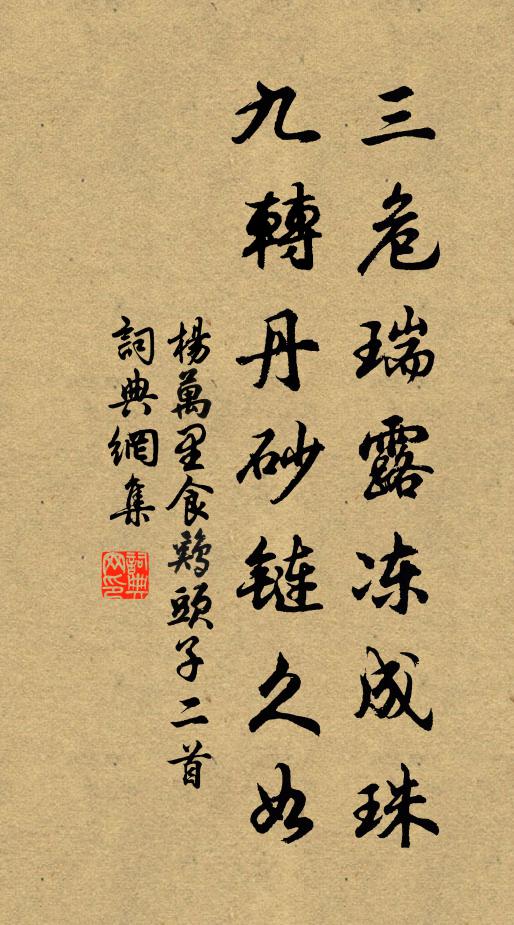 三危瑞露冻成珠
九轉丹砂鏈久如
楊萬里食鷄頭子二首
詞典網集
詞典
网印